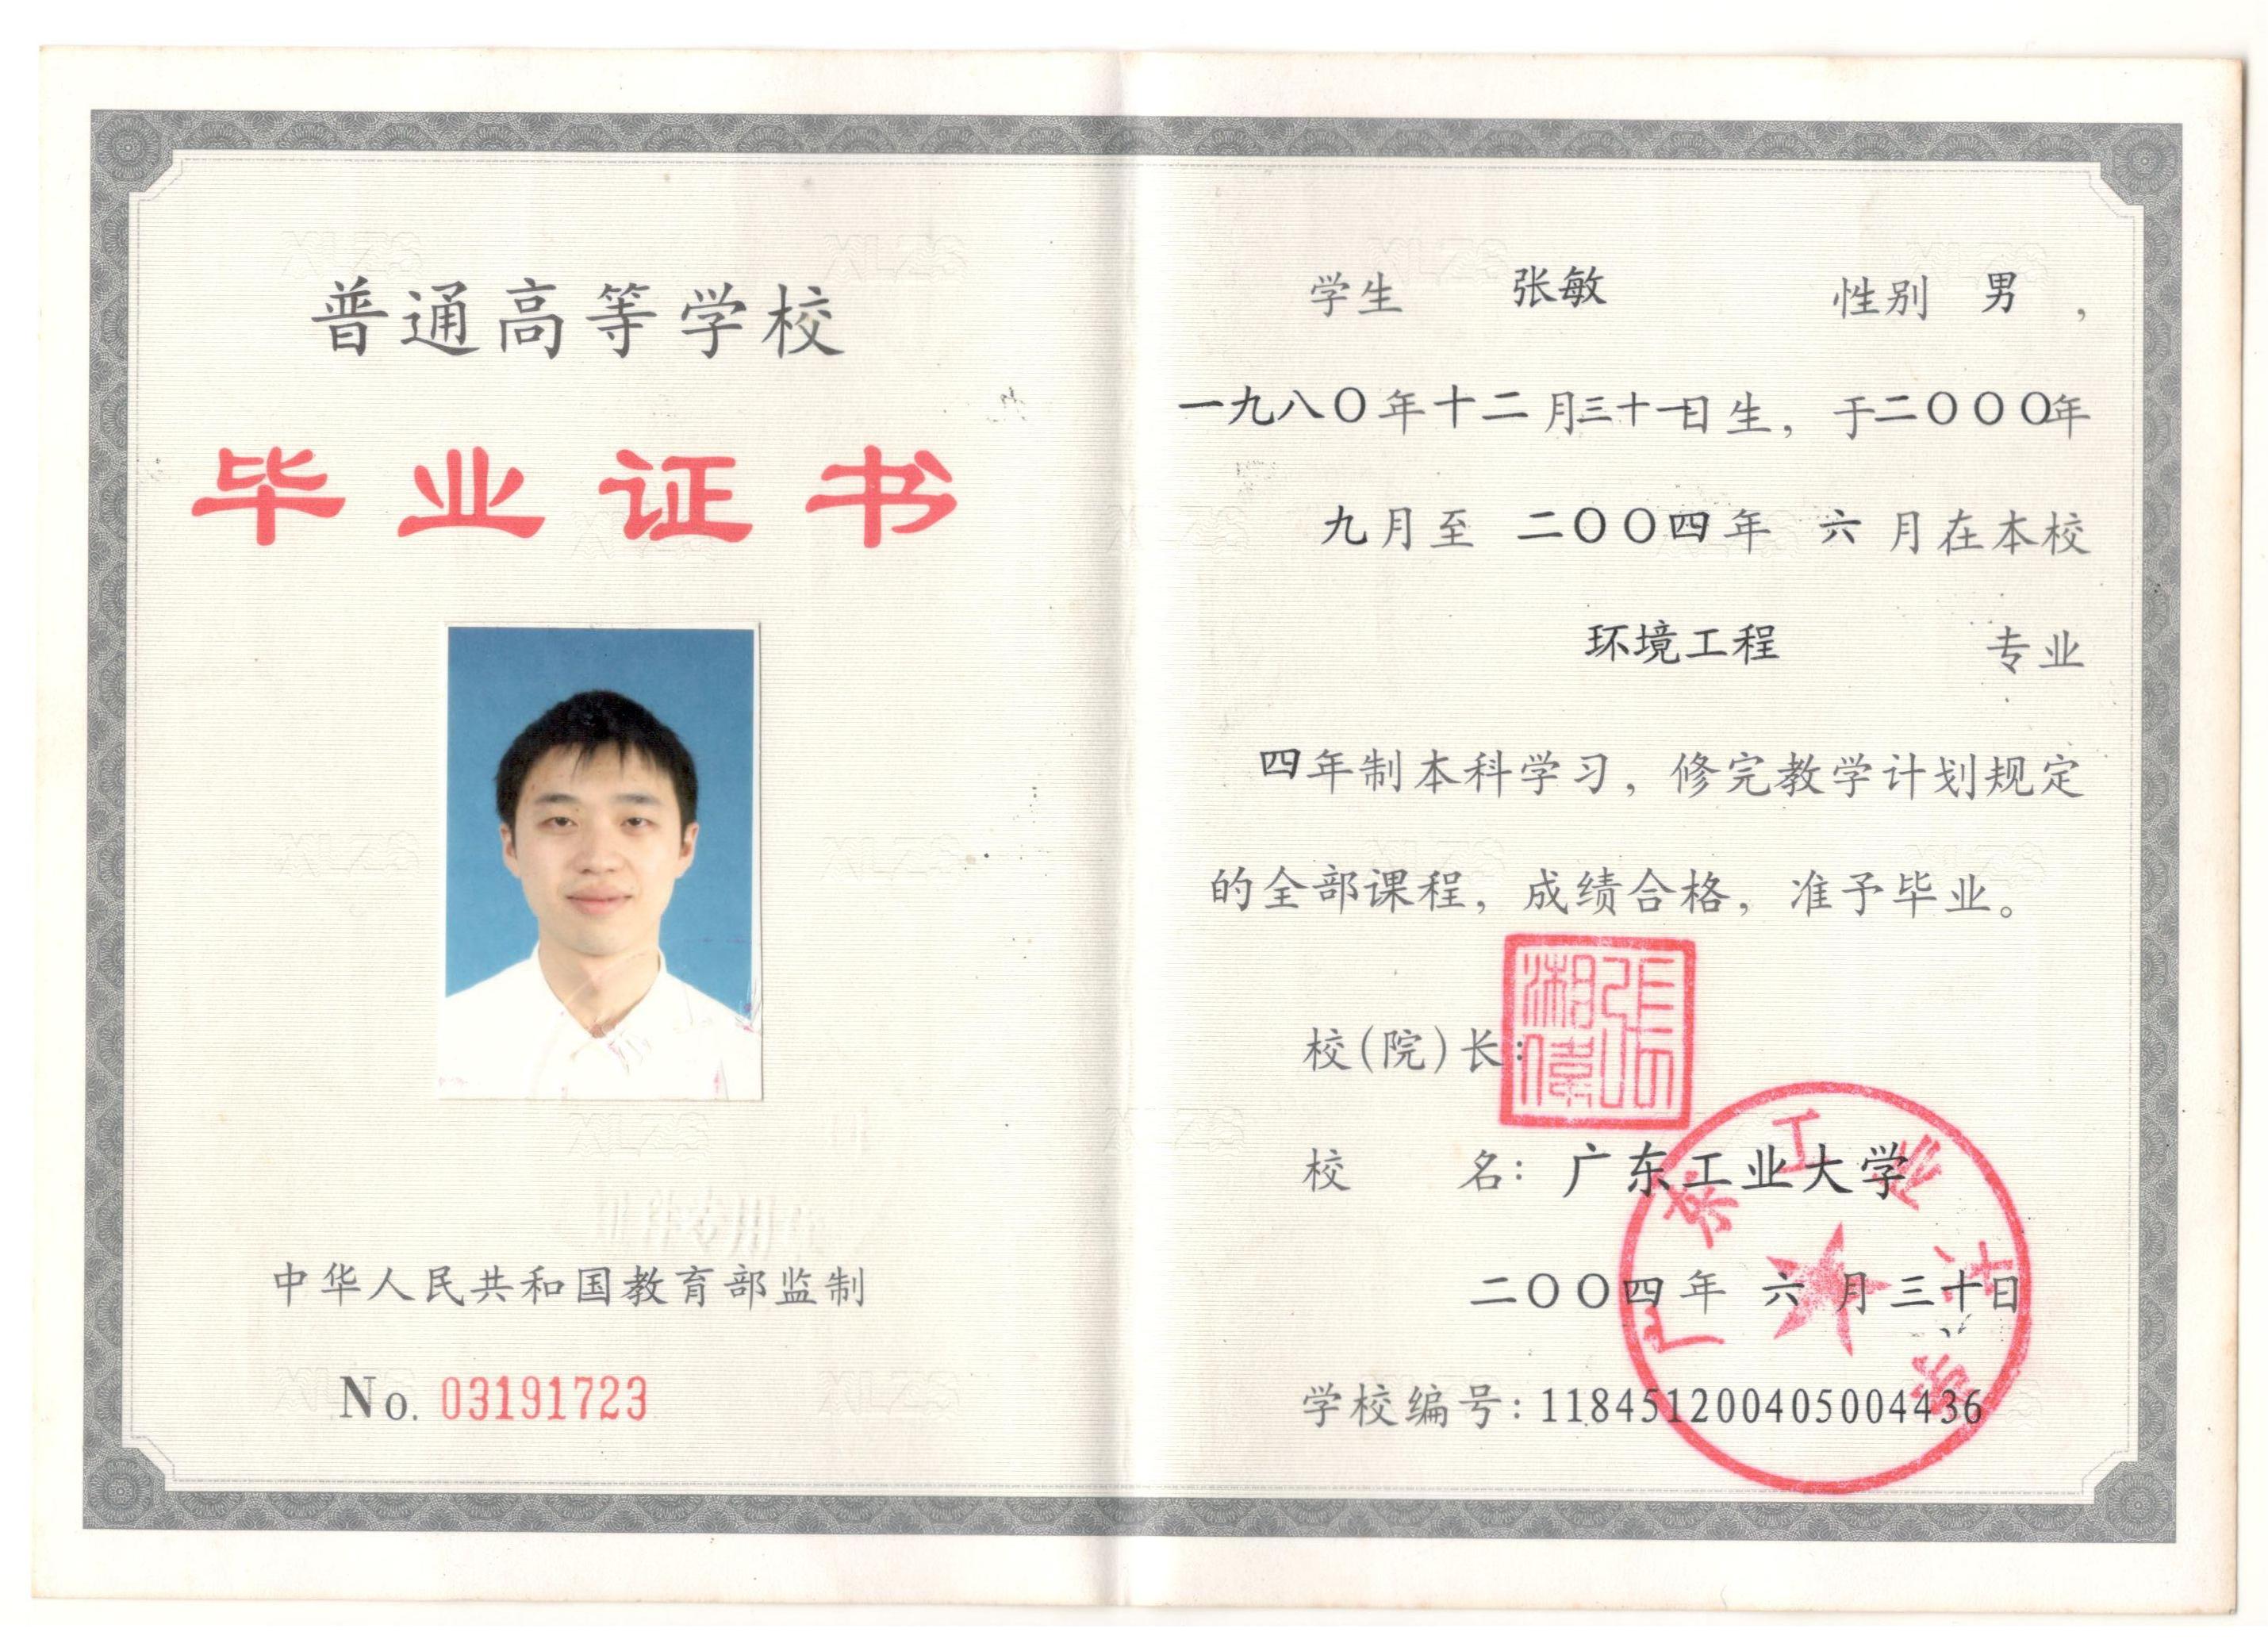 普通高等学校
毕业证书
中华人民共和国教育部监制
No. 03191723
学生 张敏 性别 男，
一九八〇年十二月三十一日生，于二〇〇〇年
九月至 二〇〇四年 六 月在本校
环境工程 专业
四年制本科学习，修完教学计划规定
的全部课程，成绩合格，准予毕业。
校(院)长：
张湘伟
校 名：广东工业大学
广东工业大学
二〇〇四年 六 月三十日
学校编号：118451200405004436